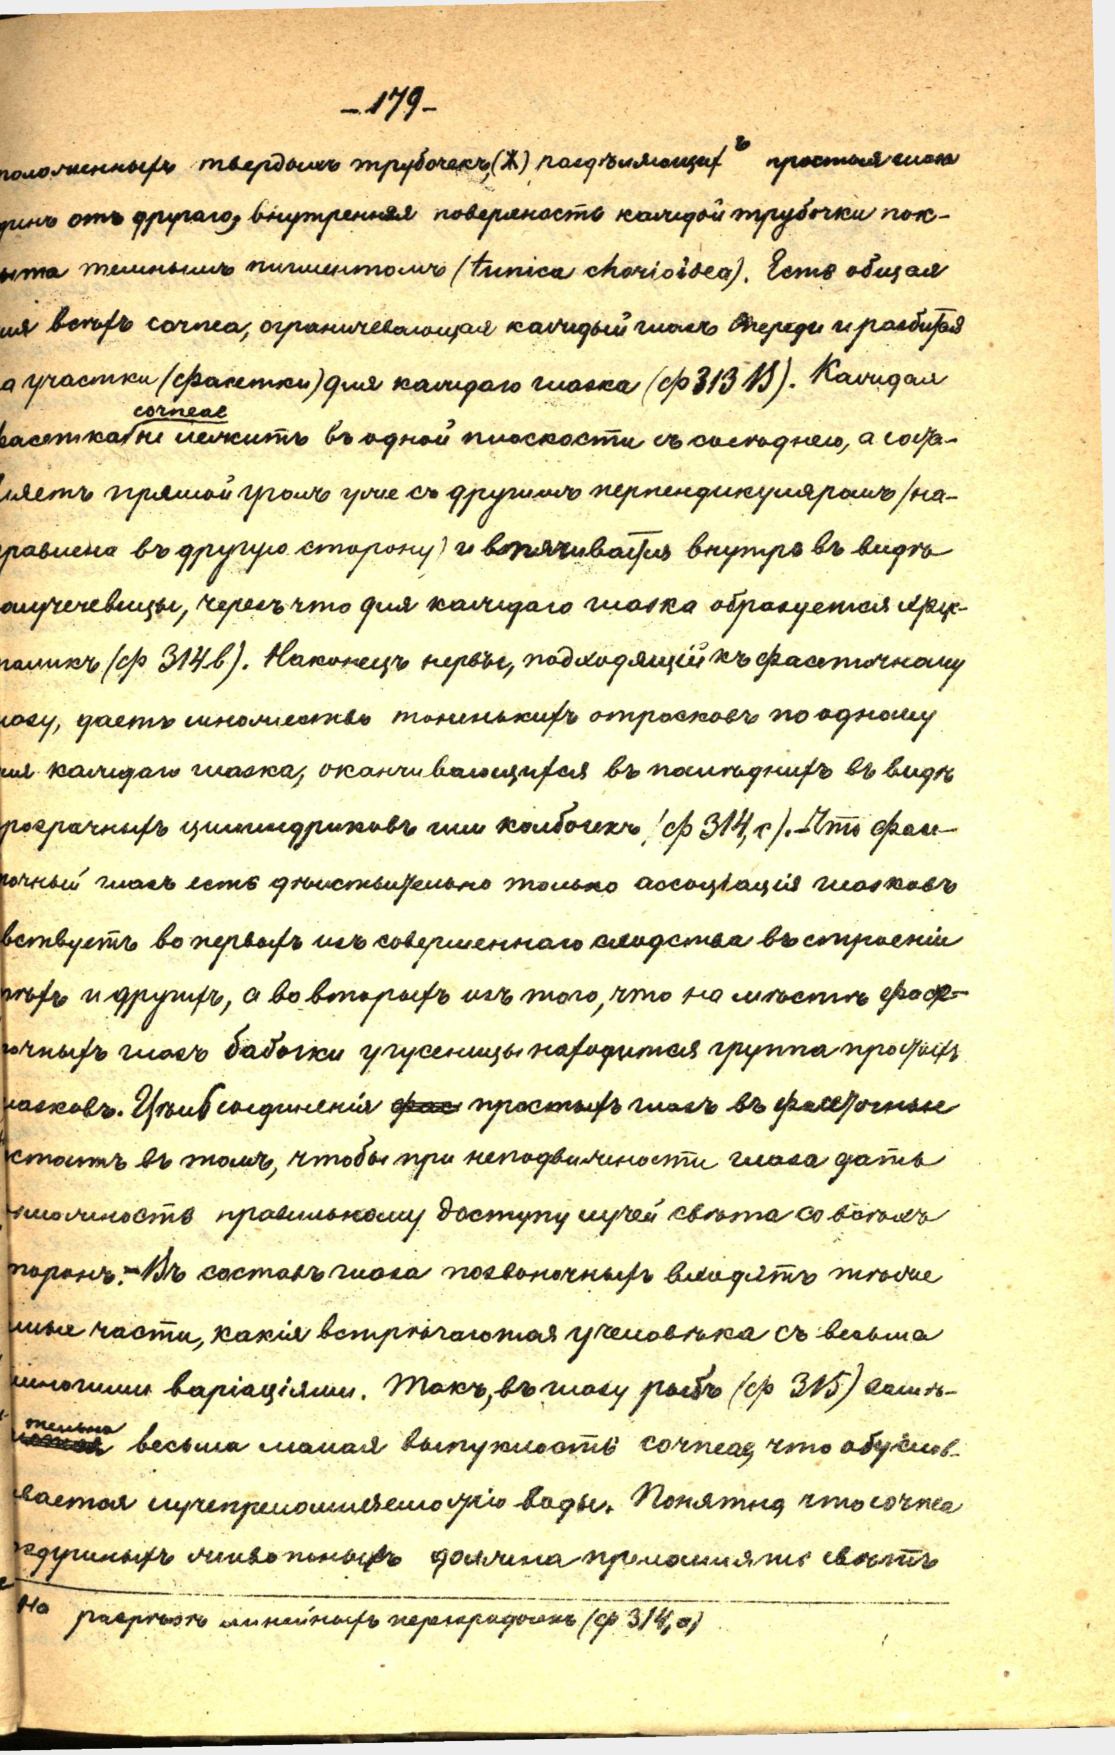 - 179 -
положенныхъ твердыхъ трубочекъ, (Ж) раздѣляющихъ простыя глаза
динъ отъ другаго, внутренняя поверхность каждой трубочки пок-
ыта темнымъ пигментомъ (tunica chorioidea). Есть общая
ля всѣхъ cornea, ограничевающая каждый глазъ спереди и разбитая
а участки (фасетки) для каждаго глазка (ф 313 В). Каждая
фасетка corneae не лежитъ въ одной плоскости съ сосѣднею, а соста-
вляетъ прямой уголъ уже съ другимъ перпендикуляромъ (на-
правлена въ другую сторону) и впячивается внутрь въ видѣ
олучечевицы, черезъ что для каждаго глазка образуется хрус-
таликъ (ф 314 в). Наконецъ нервъ, подходящій къ фасеточному
лазу, даетъ множество тоненькихъ отростковъ по одному
ля каждаго глазка, оканчивающихся въ послѣднихъ въ видѣ
розрачныхъ цилиндриковъ или колбочекъ (ф 314, с). - Что фасе-
точный глазъ есть дѣйствительно только ассоціація глазковъ
вствуетъ во первыхъ изъ совершеннаго сходства въ строеніи
тѣхъ и другихъ, а во вторыхъ изъ того, что на мѣстѣ фасе-
точныхъ глазъ бабочки у гусеницы находится группа простыхъ
лазковъ. Цѣль соединенія простыхъ глазъ въ фасеточные
стоитъ въ томъ, чтобы при неподвижности глаза дать
зможность правильному доступу лучей свѣта со всѣхъ
торонъ. - Въ составъ глаза позвоночныхъ входятъ тѣже
амыя части, какія встрѣчаются у человѣка съ весьма
многими варіаціями. Такъ, въ глазу рыбъ (ф 315) замѣ-
тельна весьма малая выпуклость corneae, что обуслов-
ивается лучепреломляемостію воды. Понятно, что cornea
оздушныхъ животныхъ должна преломлять свѣтъ
На разрѣзѣ линейныхъ перегородокъ (ф 314, а)